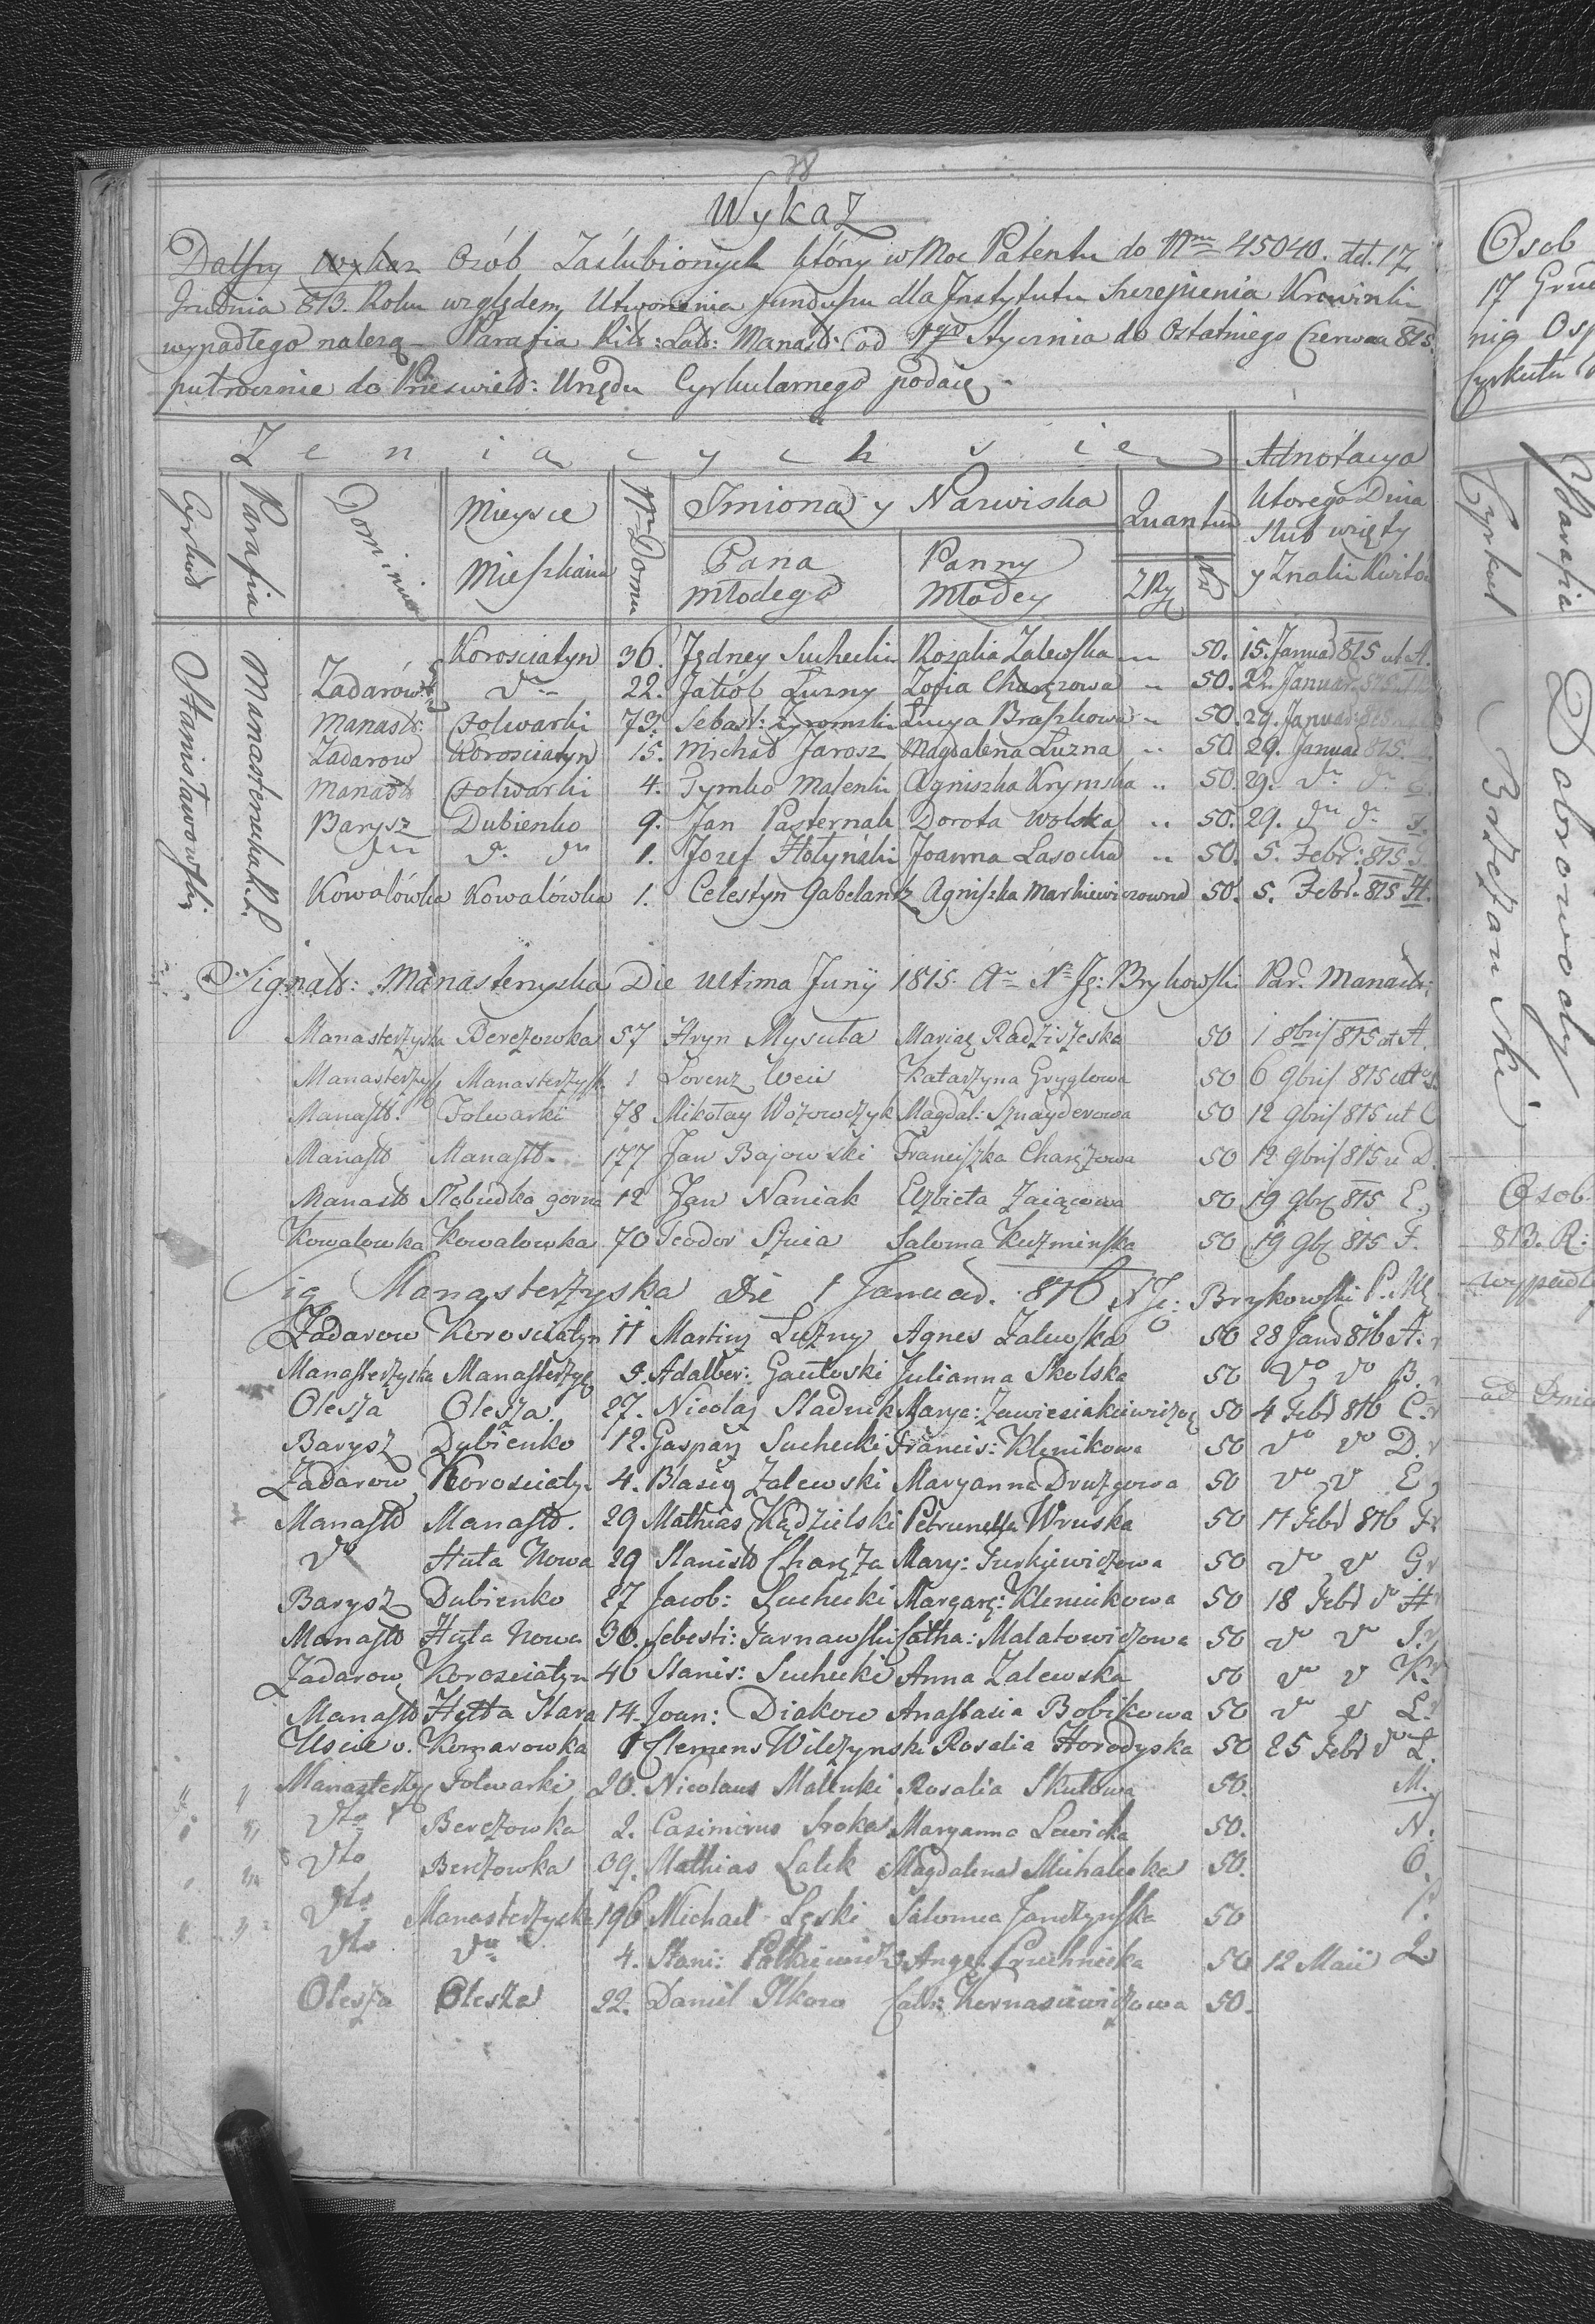 78
Wykaz
Dalszy Wykaz Osób Zaślubionych którzy w Moc Patentu do Nru 45040. dd. 17
Grudnia 813. Roku względem Utworzenia funduszu dla Instytutu Szczepienia Krowinki
wypadłego należą - Parafia Rit: Lat: Manast: od 1go Stycznia do Ostatniego Czerwca 815.
putrocznie do Przeświett: Urzędu Cyrkularnego podaię.
Zeniacych sie
Adnotacya
Cyrkuł Parafia Dominia Mieysce Mieszkania Nr Domu Imiona y Nazwiska Quantum którego Dnia
Slub wzięty
Pana Młodego Panny Młodey ZRy Xr y Znaki Kwitów
Stanisławowski Manasterzyska R.L.
Korosciatyn 36. Jędrzey Suchecki Rozalia Zalewska 50. 15. Januar 815 ut A.
Zadarów dto 22. Jakób Luzny Zofia Charęzowa 50. 22. Januar. 815
Manast: Folwarki 73. Sebast: Zyromski Lucya Braszkowa 50. 29. Januar: 815
Zadarow Korosciatyn 15. Michał Jarosz Magdalena Luzna 50. 29. Januar 815.
Manast Folwarki 4. Tymko Malenki Agniszka Krymska 50. 29. do do E.
Barysz Dubienko 9. Jan Pasternak Dorota Wolska 50. 29. do do
do do do 1. Jozef Hołynski Joanna Lasocka 50. 5. Febr: 815 G.
Kowalówka Kowalówka 1. Celestyn Gabelantz Agniszka Markiewiczowna 50. 5. Febr. 815 H.
Signat: Manasterzyska Die ultima Junÿ 1815. Brykowski Par. Manast:
Manasterzyska Berezowka 57 Hryn Mysuła Maria Radziszeska 50 1 8bris 815 ut A.
Manasterzys Manasterzysk 1 Lorenz Weis Katarzyna Gryglowa 50 6 9bris 815 ut
Manast. Folwarki 78 Mikołay Wozowczyk Magdal: Sznayderowa 50 12 9bris 815 ut C
Manast Manast. 177 Jan Bajowski Franciszka Charęzowa 50 12 9bris 815 u D.
Manast Słobudka gorna 12 Jan Naniak Elzbieta Zaiącowa 50 19 9br 815 E.
Kowalowka Kowalowka 70 Teodor Szuia Saloma Kuzminska 50 19 9br 815 F.
Sig Manasterzyska Die 1 Januar. 816 Brykowski P. M
Zadarow Korosciatyn 11 Martin Luzny Agnes Zalewska 50 28 Janr 816 A.
Manasterzyska Manasterzys 9. Adalber: Gautoski Julianna Skolska 50 do do B.
Olesza Olesza. 27. Nicolaj Stadnik Marya: Zawiesiakiewiczow 50 4 Febr 816 C.
Barysz Dubienko 12. Gaspar Suchecki Francis: Klenikowa 50 do do D.
Zadarow Korosciaty. 4. Blasius Zalewski Maryanna Druzgowa 50 do do E
Manast Manast. 29 Mathias Kądzielski Petrunella Wruska 50 17 Febr 816 F
do Huta Nowa 29 Stanisł Charęza Mary: Jurkiewiczowa 50 do do G
Barysz Dubienko 27 Jacob: Suchecki Margar: Klenikowa 50 18 Febr do H
Manast Huta Nowa 30. Sebesti: Tarnawski Catha: Malatowiczowa 50 do do J.
Zadarow Korosciatyn 46 Stanis: Suchecki Anna Zalewska 50 do do K
Manast Hutta Stara 14. Joan: Diakow Anastasia Bobikowa 50 do do L.
Uscie v. Komarowka 1 Clemens Wilczynski Rosalia Horodyska 50 25 Febr do L.
Manasterzys Folwarki 20. Nicolaus Malenki Rosalia Skutowa 50. M.
dto Berezowka 2. Casimirus Sroka Maryanna Lewicka 50. N.
dto Berezowka 39. Mathias Latek Magdalena Michaleska 50. O.
dto Manasterzyska 196. Michael Leski Salomea Janczynska 50 P.
dto do 4. Stani: Patkiewicz Ange: Pruchnicka 50 12 Maii Q
Olesza Olesza 22. Daniel Ilkow Cath: Kornasiewiczowa 50.
Osob
17 Grud
nia Osp
Cyrkułu
Cyrkuł Parafia
Brzezanski Dobrowody
Osob
813. R:
wypadł
ad Dmu